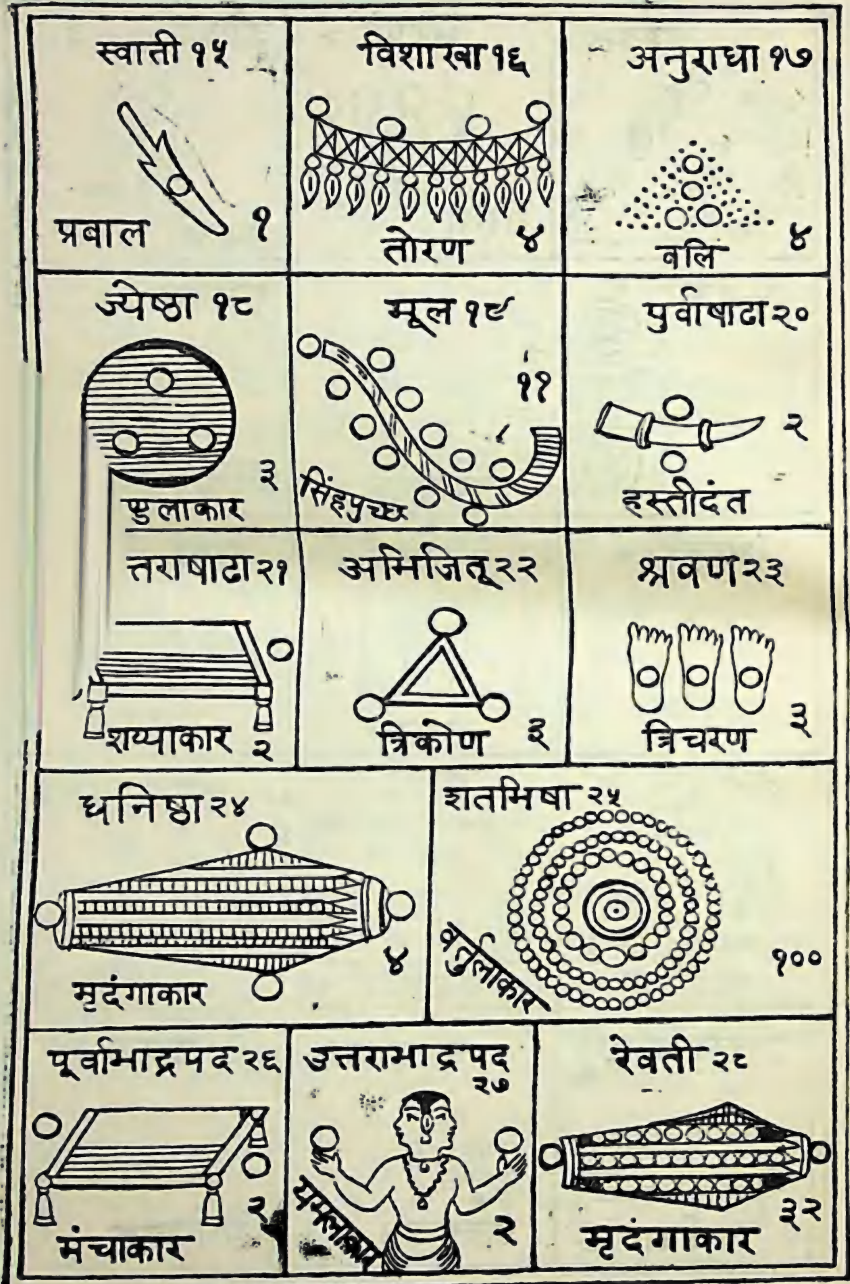 स्वाती १५
प्रवाल १
विशाखा १६
तोरण ४
अनुराधा १७
वलि ४
ज्येष्ठा १८
३
मूल १९
११
सिंहपुच्छ
पुर्वाषाढा २०
२
हस्तीदंत
त्तराषाढा २१
शय्याकार २
अभिजित् २२
त्रिकोण ३
श्रवण २३
त्रिचरण ३
धनिष्ठा २४
४
मृदंगाकार
शतभिषा २५
वर्तुलाकार
१००
पूर्वाभाद्रपद २६
२
मंचाकार
उत्तराभाद्रपद
२७
यमलाकार
२
रेवती २८
३२
मृदंगाकार